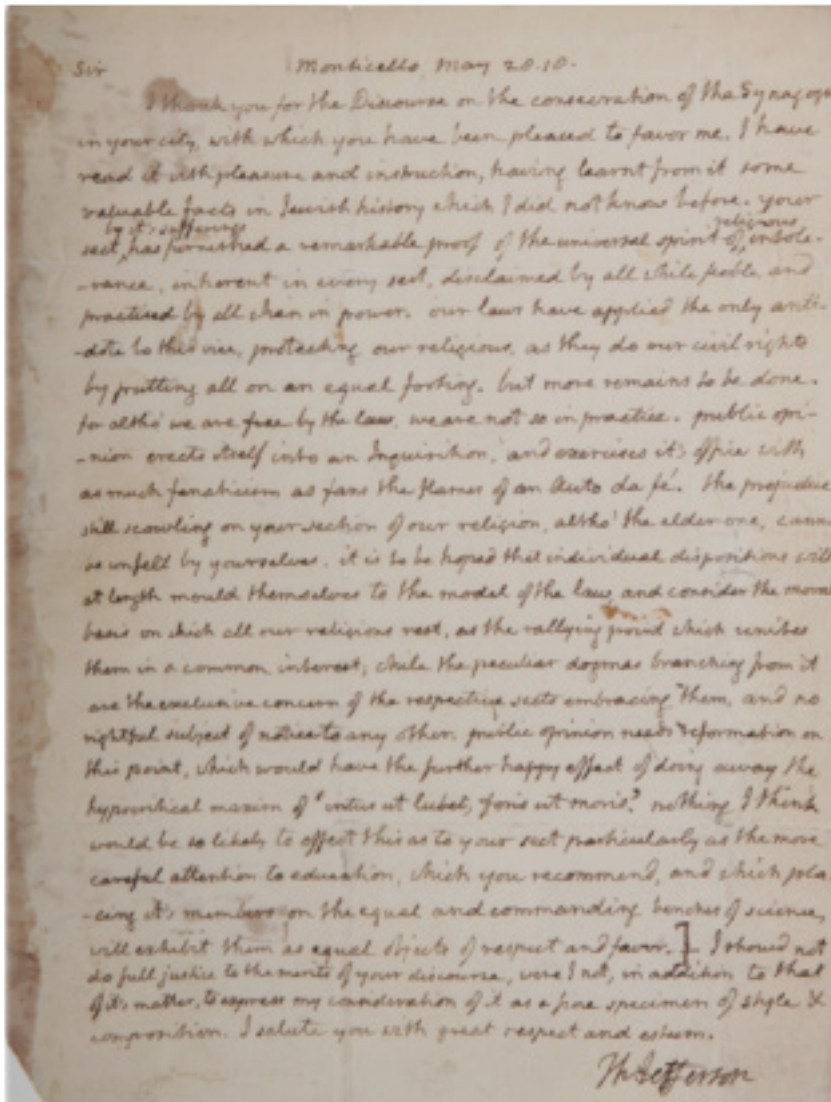 Sir Monticello May 28. 18.
I thank you for the Discourse on the consecration of the Synagogue
in your city, with which you have been pleased to favor me. I have
read it with pleasure and instruction, having learnt from it some
valuable facts in Jewish history which I did not know before. your
by it's sufferings religious
sect has furnished a remarkable proof of the universal spirit of intole-
-rance, inherent in every sect, disclaimed by all while feeble, and
practised by all when in power. our laws have applied the only anti-
-dote to this vice, protecting our religious, as they do our civil rights
by putting all on an equal footing. but more remains to be done.
for altho' we are free by the law, we are not so in practice. public opi-
-nion erects itself into an Inquisition, and exercises it's office with
as much fanaticism as fans the flames of an Auto da fé. the prejudice
still scowling on your section of our religion, altho' the elder one, cannot
be unfelt by yourselves. it is to be hoped that individual dispositions will
at length mould themselves to the model of the law, and consider the moral
basis on which all our religions rest, as the rallying point which unites
them in a common interest; while the peculiar dogmas branching from it
are the exclusive concern of the respective sects embracing them, and no
rightful subject of notice to any other. public opinion needs reformation on
this point, which would have the further happy effect of doing away the
hypocritical maxim of "intus ut lubet, foris ut moris". nothing I think
would be so likely to effect this as to your sect particularly as the more
careful attention to education, which you recommend, and which pla
-cing it's members on the equal and commanding benches of science,
will exhibit them as equal objects of respect and favor.] I should not
do full justice to the merits of your discourse, were I not, in addition to that
of it's matter, to express my consideration of it as a fine specimen of style &
composition. I salute you with great respect and esteem.
Th Jefferson